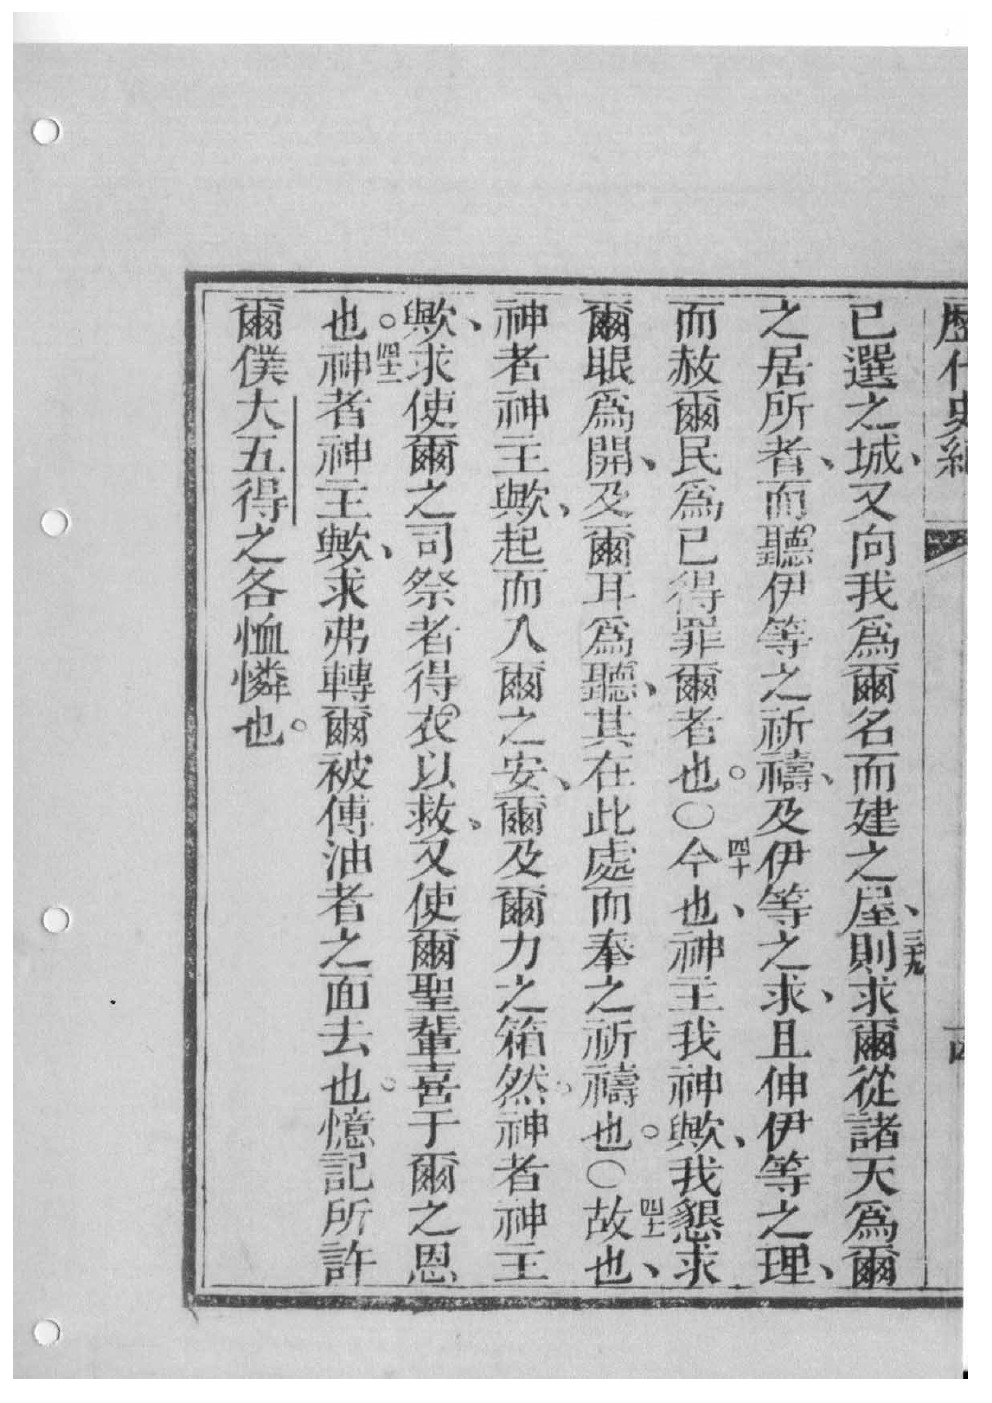 歷代史紀
已選之城、又向我爲爾名而建之屋、三九則求爾從諸天爲爾
之居所者、而聽伊等之祈禱、及伊等之求、且伸伊等之理、
而赦爾民爲已得罪爾者也。○四十今也、神主我神歟、我懇求
爾眼爲開、及爾耳爲聽、其在此處而奉之祈禱也。○四十一故也、
神者神主歟、起而入爾之安、爾及爾力之箱然。神者神主
歟、求使爾之司祭者得衣以救、又使爾聖輩喜于爾之恩
也。四十二神者神主歟、求弗轉爾被傅油者之面去也。憶記所許
爾僕大五得之各恤憐也。